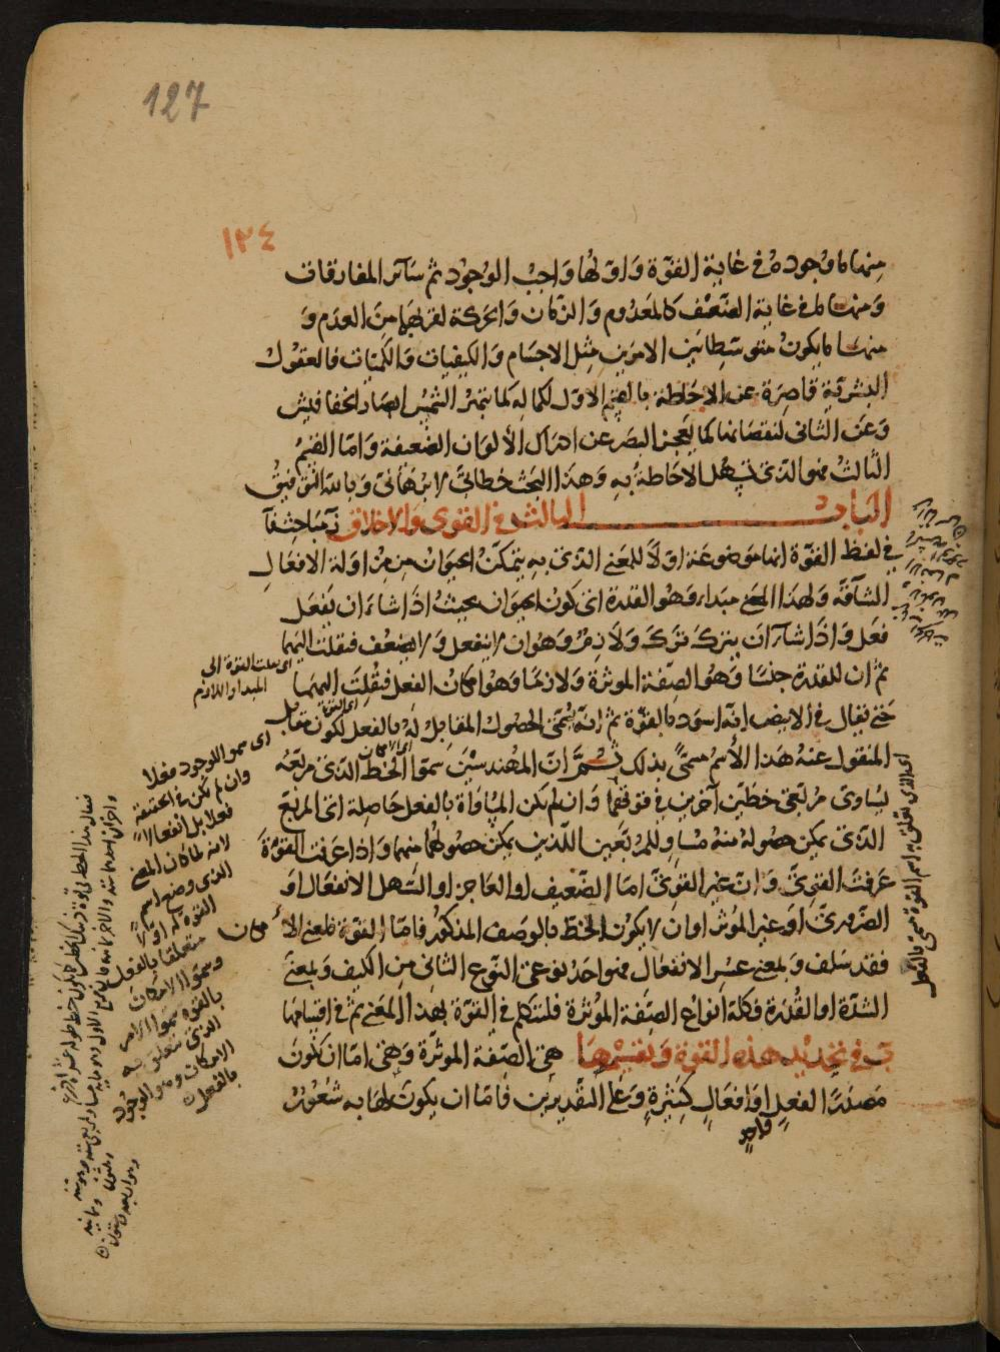 127
١٣٤
منها ما وجوده في غاية القوة واولها واجب الوجود ثم سائر المفارقات
ومنها ما في غاية الضعف كالمعدوم والزمان والحركة لقربها من العدم و
منها ما يكون متوسطا بين الامرين مثل الاجسام والكيفيات والكميات فالعقول
البشرية قاصرة عن الاحاطة بالقسم الاول لكماله كما تبهر الشمس ابصار الخفافيش
وعن الثاني لنقصانها كما يعجز البصر عن ادراك الألوان الضعيفة واما القسم
الثالث فهو الذي يسهل الاحاطة به وهذا البحث خطابي لا برهاني وبالله التوفيق
الباب الثالث في القوى والاخلاق آ مباحث آ
في لفظ القوة انها موضوعة اولا للمعنى الذي به يتمكن الحيوان من مزاولة الافعال
الشاقة ولهذا المعنى مبداء وهو القدرة اي كون الحيوان بحيث اذا شاء ان يفعل
فعل واذا شاء ان يترك ترك ولازم وهو ان لا ينفعل ولا يضعف فنقلت اليهما
ثم ان للقدرة جنسا وهو الصفة الموثرة ولازما وهو امكان الفعل فنقلت اليهما
حتى يقال في الابيض انه اسود بالقوة ثم انه سمى الحصول المقابل له بالفعل لكون مقابل
المنقول عنه هذا الأسم مسمى بذلك ثم ان المهندسين سموا الخط الذي مربعه
يساوي مربعي خطين آخرين في قوتهما وان لم يكن المساواة بالفعل حاصلة اي المربع
الذي يمكن حصوله منه مساو للمربعين اللذين يمكن حصولهما منهما واذا عرفت القوة
عرفت القوي وان غير القوي اما الضعيف او العاجز او السهل الانفعال او
الضروري او غير الموثر او ان لا يكون الخط بالوصف المذكور فاما القوة بمعنى الأمكان
فقد سلف وبمعنى عسر الانفعال فهو احد نوعي النوع الثاني من الكيف وبمعنى
الشدة او القدرة فكلها انواع الصفة الموثرة فلنتكلم في القوة بهذا المعنى ثم في اقسامها
ب في تحديد هذه القوة وتقسيمها هي الصفة الموثرة وهي اما ان تكون
مصدر الفعل او افعال كثيرة وعلى التقديرين فاما ان يكون لها به شعور
واحد
اي نقلت القوة الى
المبدأ واللازم
اي القوة
اي الامكان
اي سموا الوجود فعلا
وان لم يكن في الحقيقة
فعلا بل انفعالا
لانه لما كان المعنى
الذي وضع اسم
القوة له اولا
متعلقا بالفعل
وسموا الامكان
بالقوة سموا الامر
الذي يتعلق به
الامكان وهو
بالفعل